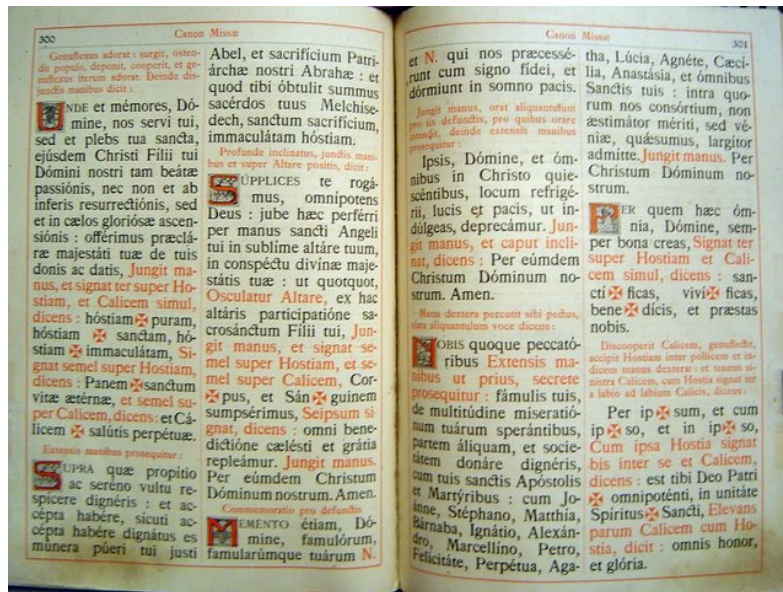 300
Canon Missæ
Genuflexus adorat : surgit, osten-
dit populo, deponit, cooperit, et ge-
nuflexus iterum adorat. Deinde dis-
junctis manibus dicit :
UNDE et mémores, Dó-
mine, nos servi tui,
sed et plebs tua sancta,
ejúsdem Christi Fílii tui
Dómini nostri tam beátæ
passiónis, nec non et ab
ínferis resurrectiónis, sed
et in cælos gloriósæ ascen-
siónis : offérimus præclá-
ræ majestáti tuæ de tuis
donis ac datis, Jungit ma-
nus, et signat ter super Ho-
stiam, et Calicem simul,
dicens : hóstiam ✠ puram,
hóstiam ✠ sanctam, hó-
stiam ✠ immaculátam, Si-
gnat semel super Hostiam,
dicens : Panem ✠ sanctum
vitæ ætérnæ, et semel su-
per Calicem, dicens : et Cá-
licem ✠ salútis perpétuæ.
Extensis manibus prosequitur :
SUPRA quæ propítio
ac seréno vultu re-
spícere dignéris : et ac-
cépta habére, sícuti ac-
cépta habére dignátus es
múnera púeri tui justi
Abel, et sacrifícium Patri-
árchæ nostri Abrahæ : et
quod tibi óbtulit summus
sacérdos tuus Melchíse-
dech, sanctum sacrifícium,
immaculátam hóstiam.
Profunde inclinatus, junctis mani-
bus et super Altare positis, dicit :
SÚPPLICES te rogá-
mus, omnípotens
Deus : jube hæc perférri
per manus sancti Angeli
tui in sublíme altáre tuum,
in conspéctu divínæ maje-
státis tuæ : ut quotquot,
Osculatur Altare, ex hac
altáris participatióne sa-
crosánctum Fílii tui, Jun-
git manus, et signat se-
mel super Hostiam, et se-
mel super Calicem, Cor-
✠ pus, et Sán ✠ guinem
sumpsérimus, Seipsum si-
gnat, dicens : omni bene-
dictióne cælésti et grátia
repleámur. Jungit manus.
Per eúmdem Christum
Dóminum nostrum. Amen.
Commemoratio pro defunctis
MEMÉNTO étiam, Dó-
mine, famulórum,
famularúmque tuárum N.
Canon Missæ
301
et N. qui nos præcessé-
runt cum signo fídei, et
dórmiunt in somno pacis.
Jungit manus, orat aliquantulum
pro iis defunctis, pro quibus orare
intendit, deinde extensis manibus
prosequitur :
Ipsis, Dómine, et óm-
nibus in Christo quie-
scéntibus, locum refrigé-
rii, lucis et pacis, ut in-
dúlgeas, deprecámur. Jun-
git manus, et caput incli-
nat, dicens : Per eúmdem
Christum Dóminum no-
strum. Amen.
Manu dextera percutit sibi pectus,
elata aliquantulum voce dicens :
NOBIS quoque peccató-
ribus Extensis ma-
nibus ut prius, secrete
prosequitur : fámulis tuis,
de multitúdine miseratió-
num tuárum sperántibus,
partem áliquam, et socie-
tátem donáre dignéris,
cum tuis sanctis Apóstolis
et Martýribus : cum Jo-
ánne, Stéphano, Matthía,
Bárnaba, Ignátio, Alexán-
dro, Marcellíno, Petro,
Felicitáte, Perpétua, Aga-
tha, Lúcia, Agnéte, Cæcí-
lia, Anastásia, et ómnibus
Sanctis tuis : intra quo-
rum nos consórtium, non
æstimátor mériti, sed vé-
niæ, quǽsumus, largítor
admítte. Jungit manus. Per
Christum Dóminum no-
strum.
PER quem hæc óm-
nia, Dómine, sem-
per bona creas, Signat ter
super Hostiam et Cali-
cem simul, dicens : san-
ctí ✠ ficas, viví ✠ ficas,
bene ✠ dícis, et præstas
nobis.
Discooperit Calicem, genuflectit,
accipit Hostiam inter pollicem et in-
dicem manus dexteræ : et tenens si-
nistra Calicem, cum Hostia signat ter
a labio ad labium Calicis, dicens :
Per ip ✠ sum, et cum
ip ✠ so, et in ip ✠ so,
Cum ipsa Hostia signat
bis inter se et Calicem,
dicens : est tibi Deo Patri
✠ omnipoténti, in unitáte
Spíritus ✠ Sancti, Elevans
parum Calicem cum Ho-
stia, dicit : omnis honor,
et glória.